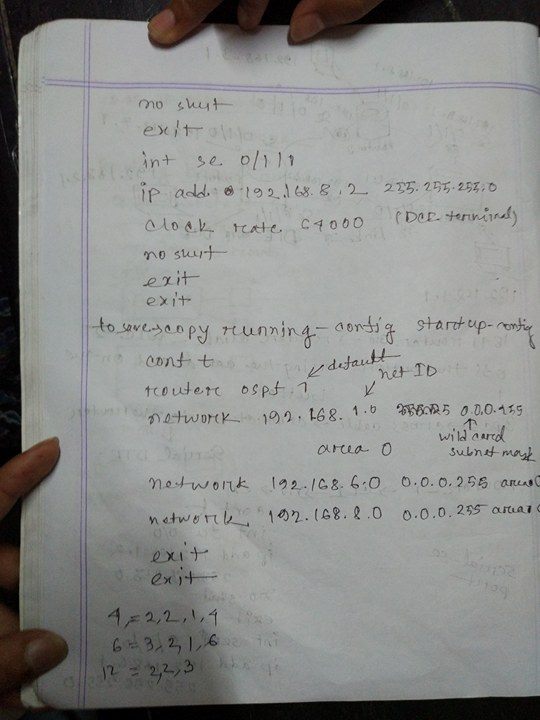 no shut
exit
int se 0/1/1
ip add 192.168.8.2 255.255.255.0
clock rate 64000 (DCE terminal)
no shut
exit
exit
to save→copy running-config startup-config
conf t
router ospf 1 ↙ default
↙ net ID
network 192.168.1.0 0.0.0.255
↑
wild card
subnet mask
area 0
network 192.168.6.0 0.0.0.255 area 0
network 192.168.8.0 0.0.0.255 area
exit
exit
4 = 2, 2, 1, 4
6 = 3, 2, 1, 6
12 = 2, 2, 3